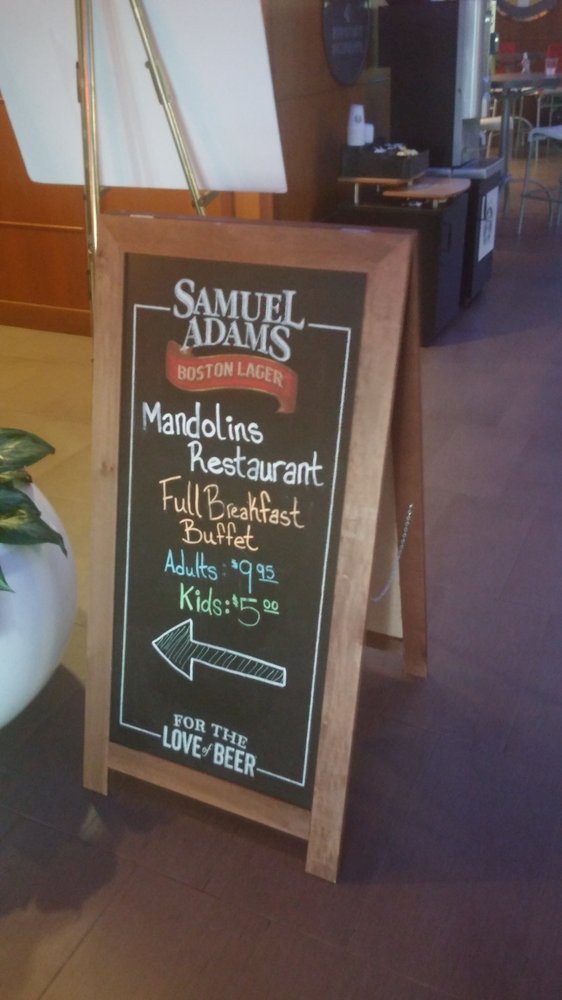 SAMUEL
ADAMS
BOSTON LAGER
Mandolins
Restaurant
Full Breakfast
Buffet
Adults: $9.95
Kids: $5.00
FOR THE
LOVE of BEER